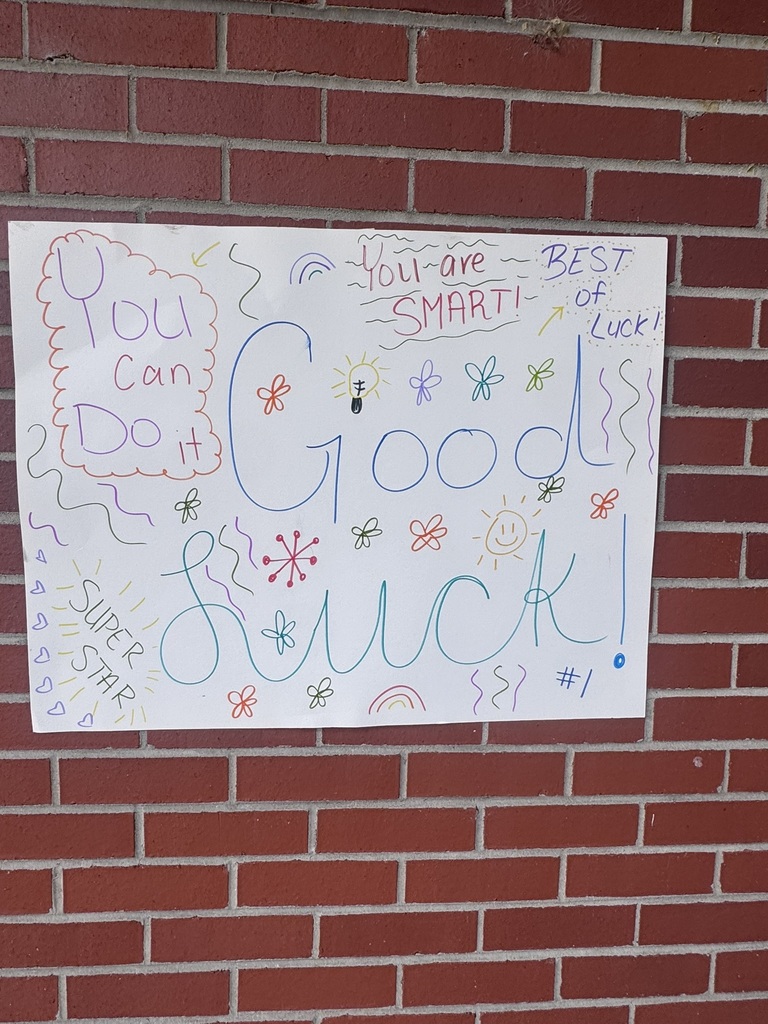 You
Can
Do it
You are
SMART!
BEST
of
Luck!
Good
Luck!
SUPER
STAR
#1